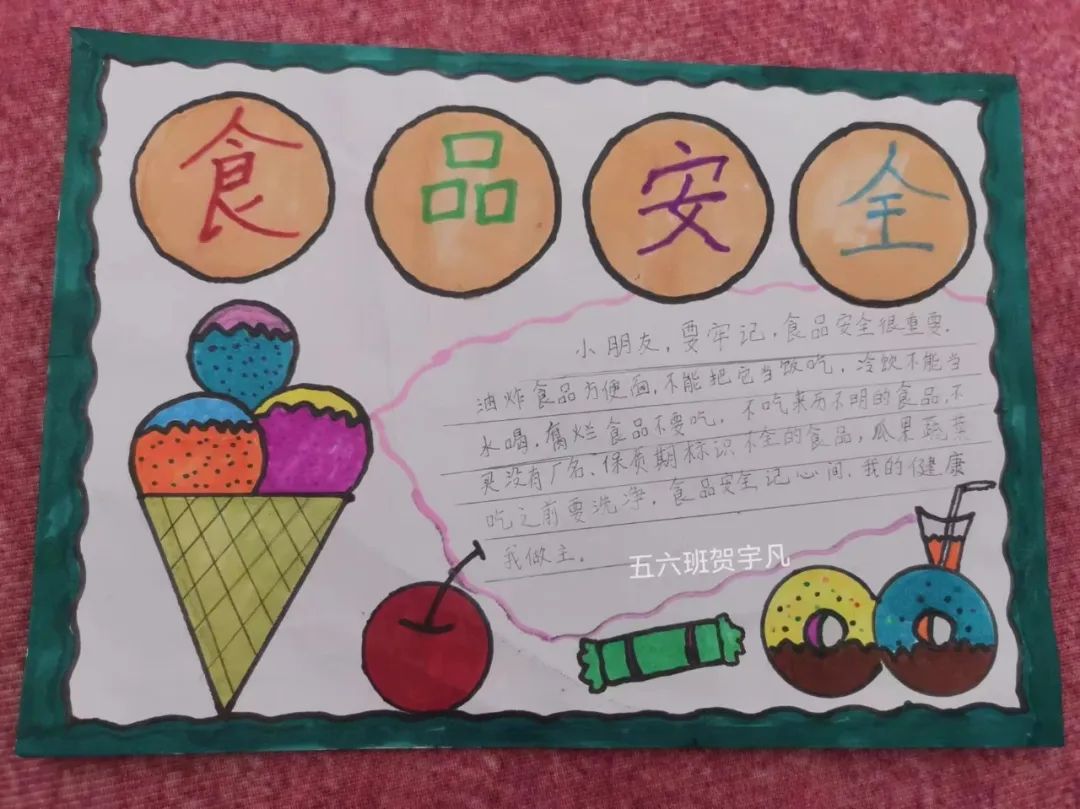 食品安全
小朋友,要牢记,食品安全很重要.
油炸食品方便面,不能把它当饭吃,冷饮不能当
水喝,腐烂食品不要吃,不吃来历不明的食品,不
买没有厂名、保质期标识不全的食品,瓜果蔬菜
吃之前要洗净,食品安全记心间,我的健康
我做主.
五六班贺宇凡